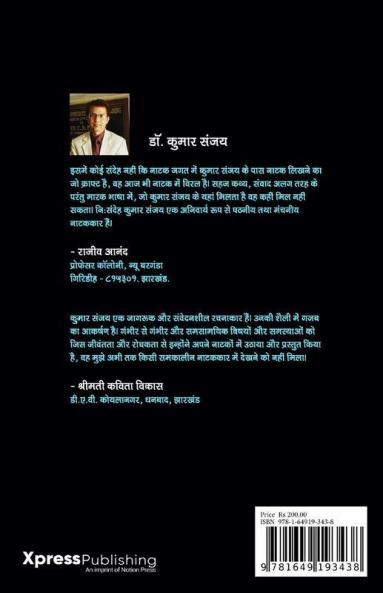 डॉ. कुमार संजय
इसमें कोई संदेह नहीं कि नाटक जगत में कुमार संजय के पास नाटक लिखने का
जो क्राफ्ट है, वह आज भी नाटक में विरल है। सहज कथ्य, संवाद अलग तरह के
परंतु मारक भाषा में, जो कुमार संजय के यहां मिलता है वह कहीं मिल नहीं
सकता। नि:संदेह कुमार संजय एक अनिवार्य रूप से पठनीय तथा मंचनीय
नाटककार हैं।
- राजीव आनंद
प्रोफेसर कॉलोनी, न्यू बरगंडा
गिरिडीह - ८१५३०१. झारखंड.
कुमार संजय एक जागरूक और संवेदनशील रचनाकार हैं। उनकी शैली में गजब
का आकर्षण है। गंभीर से गंभीर और समसामयिक विषयों और समस्याओं को
जिस जीवंतता और रोचकता से इन्होंने अपने नाटकों में उठाया और प्रस्तुत किया
है, वह मुझे अभी तक किसी समकालीन नाटककार में देखने को नहीं मिला।
- श्रीमती कविता विकास
डी.ए.वी. कोयलानगर, धनबाद, झारखंड
Price Rs 200.00
ISBN 978-1-64919-343-8
9 781649 193438
XpressPublishing
An imprint of Notion Press